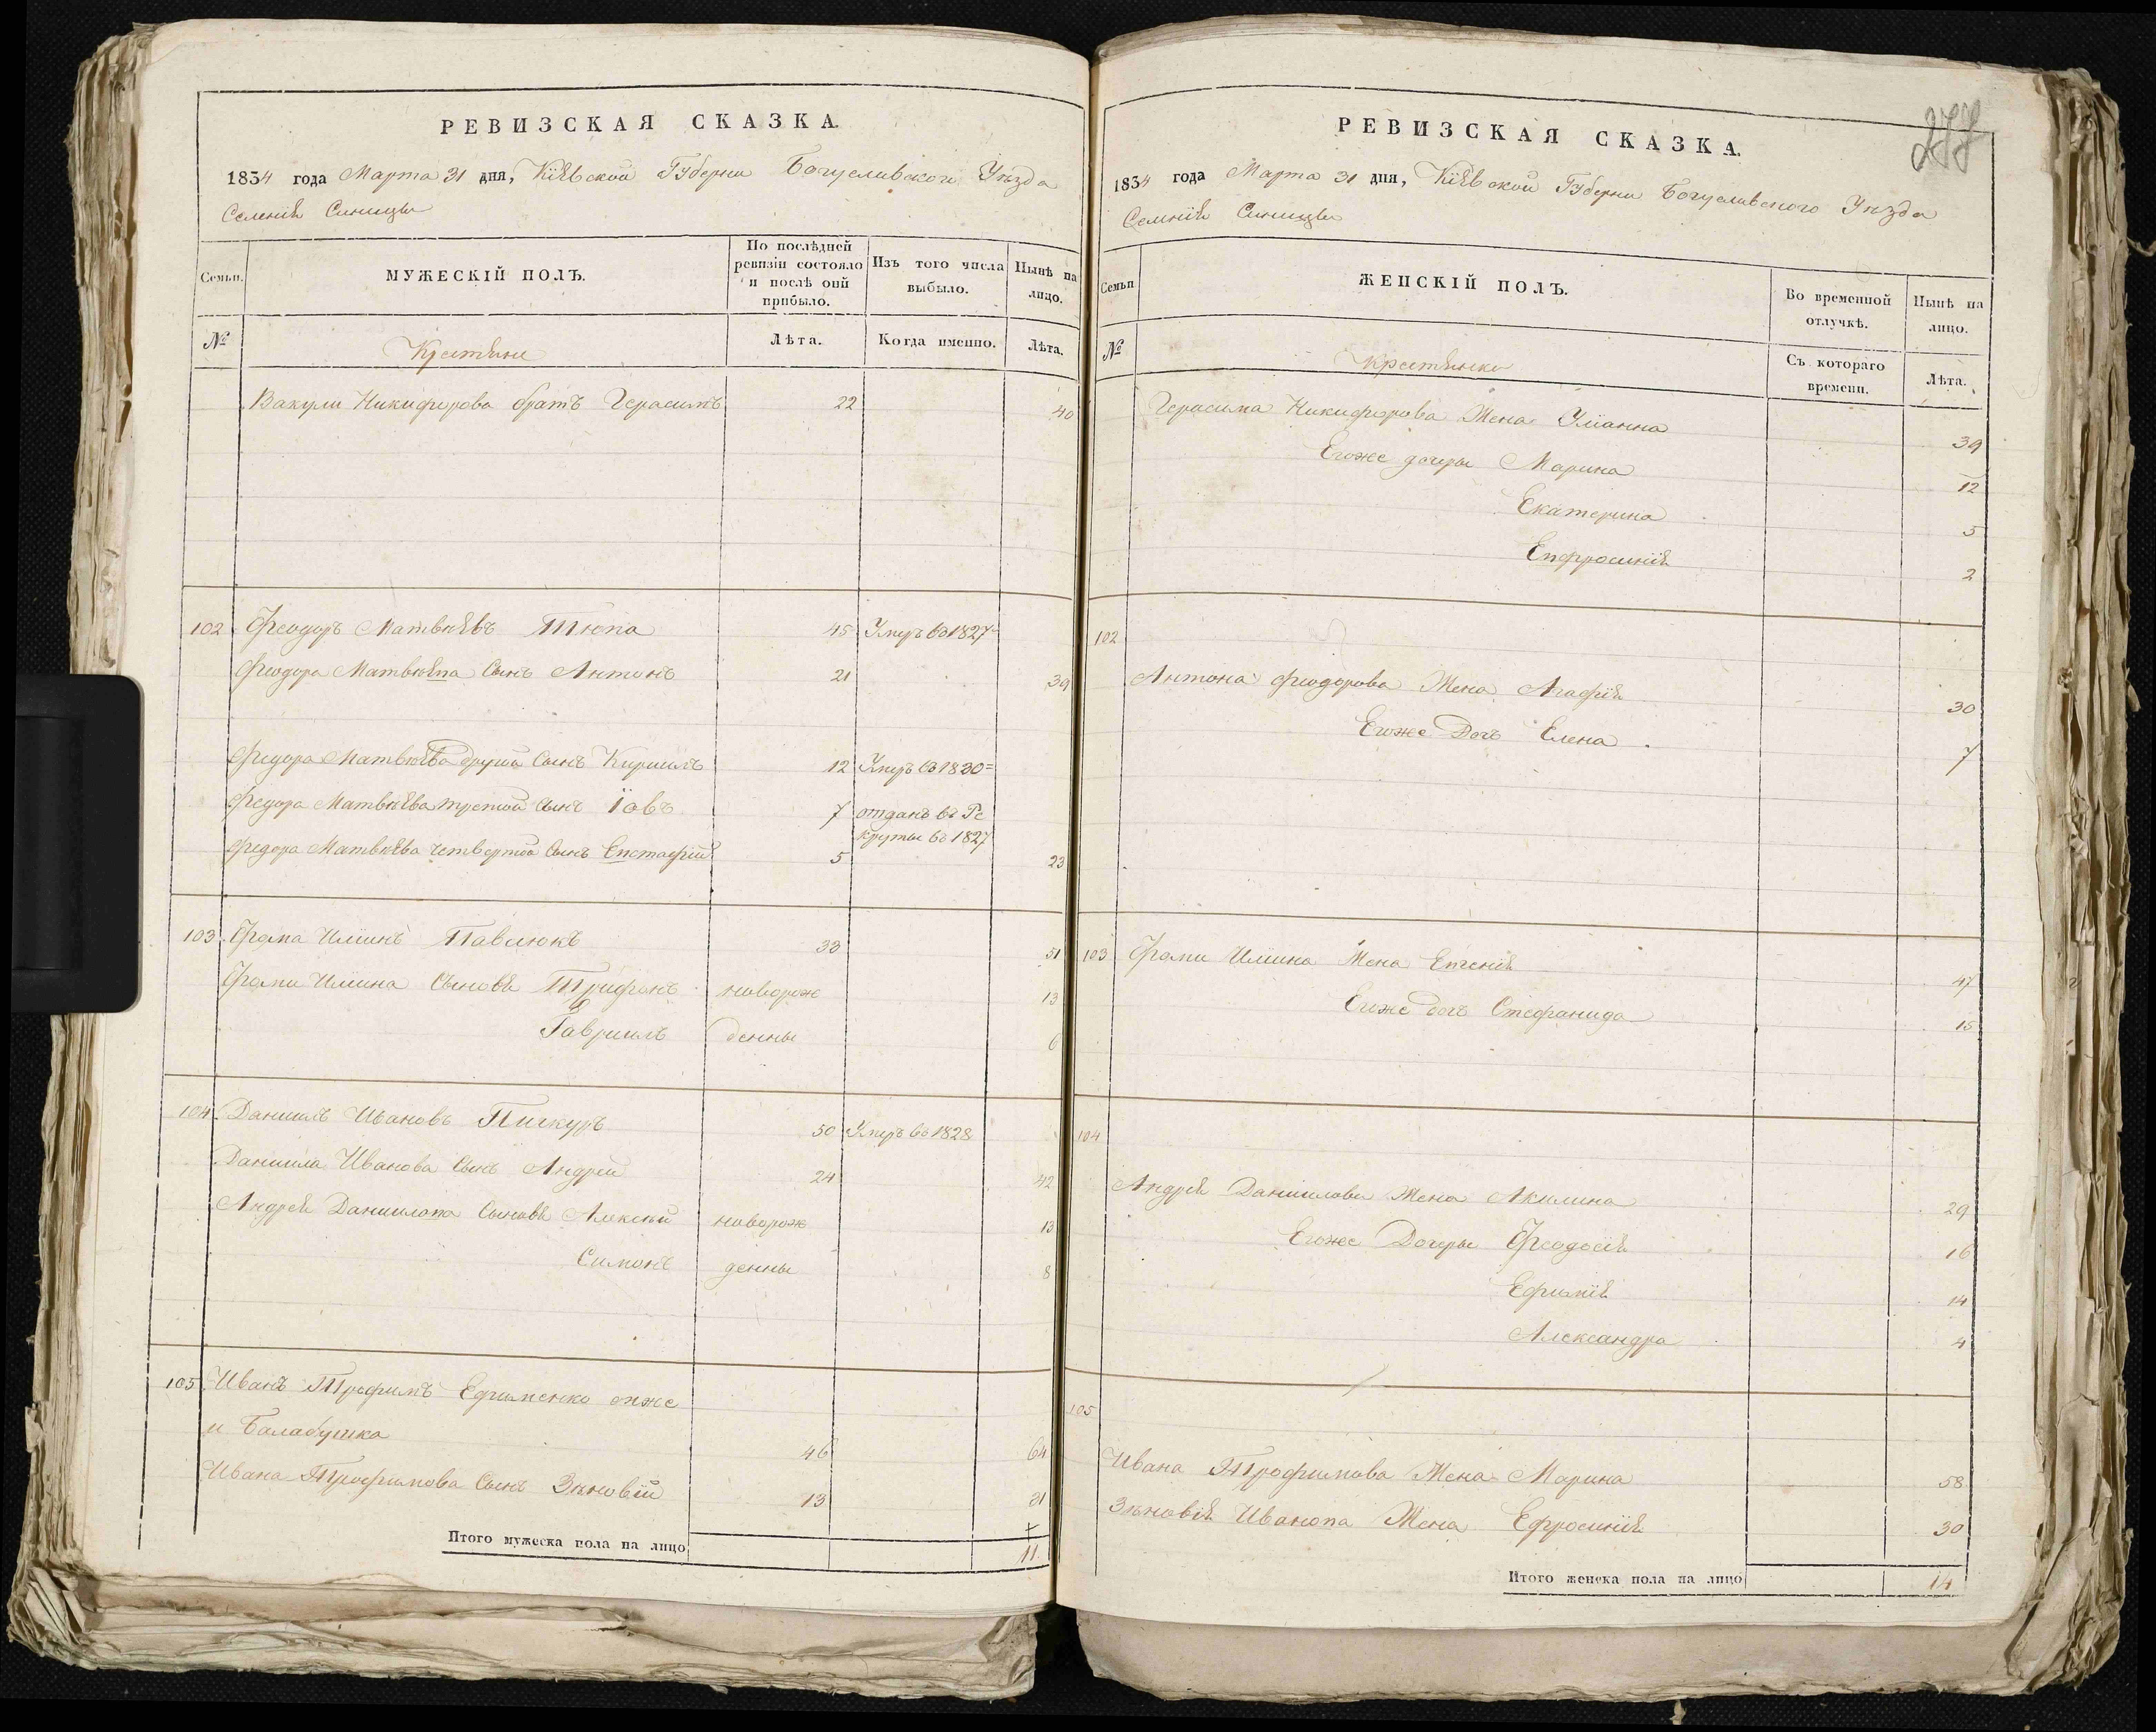 РЕВИЗСКАЯ СКАЗКА.
1834 года Марта 31 дня, Кіевской Губерни Богуславского Уѣзда
Селенія Синицы
Семьи.
МУЖЕСКІЙ ПОЛЪ.
По послѣдней
ревизіи состояло
и послѣ оній
прибыло.
Изъ того числа
выбыло.
Нынѣ на
лицо.
№
Крестяне
Лѣта.
Когда именно.
Лѣта.
Вакули Никифорова братъ Герасимъ 22 40
102 Феодоръ Матвѣевъ Тюпа 45 Умеръ въ 1827
Феодора Матвѣева Сынъ Антонъ 21 39
Федора Матвѣева другой Сынъ Кирилъ 12 Умеръ въ 1830=
Федора Матвѣева третой Сынъ Їовъ 7 отданъ въ Ре
круты въ 1827
Федора Матвѣева четвертой Сынъ Евстафій 5 23
103 Фома Илїинъ Павлюкъ 33 51
Фоми Илїина Сыновя Трифонъ новорож 13
Гавріилъ денны 6
104 Даниилъ Ивановъ Пискуръ 50 Умеръ въ 1828
Даниила Иванова Сынъ Андрей 24 42
Андрея Даниилова Сыновя Алексѣй новорож 13
Симонъ денны 8
105 Иванъ Трофимъ Ефименко онже
и Балабушка 46 64
Ивана Трофимова Сынъ Зѣновїй 13 31
Итого мужеска пола на лицо 11
РЕВИЗСКАЯ СКАЗКА.
277
1834 года Марта 31 дня, Кіевской Губерни Богуславского Уѣзда
Селенія Синицы
Семьи
ЖЕНСКІЙ ПОЛЪ.
Во временной
отлучкѣ.
Нынѣ на
лицо.
№
Крестянки
Съ котораго
времени.
Лѣта.
Герасима Никифорова Жена Улїанна 39
Егоже дочеры Марина 12
Екатерина 5
Евфросинія 2
102
Антона Феодорова Жена Агафія 30
Егоже Дочъ Елена 7
103 Фоми Илїина Жена Евгенія 47
Егоже дочъ Стефанида 15
104
Андрея Даниилова Жена Акилина 29
Егоже Дочеры Феодосія 16
Ефимія 14
Александра 4
105
Ивана Трофимова Жена Марина 58
Зѣновія Иванова Жена Ефросинія 30
Итого женска пола на лицо 14